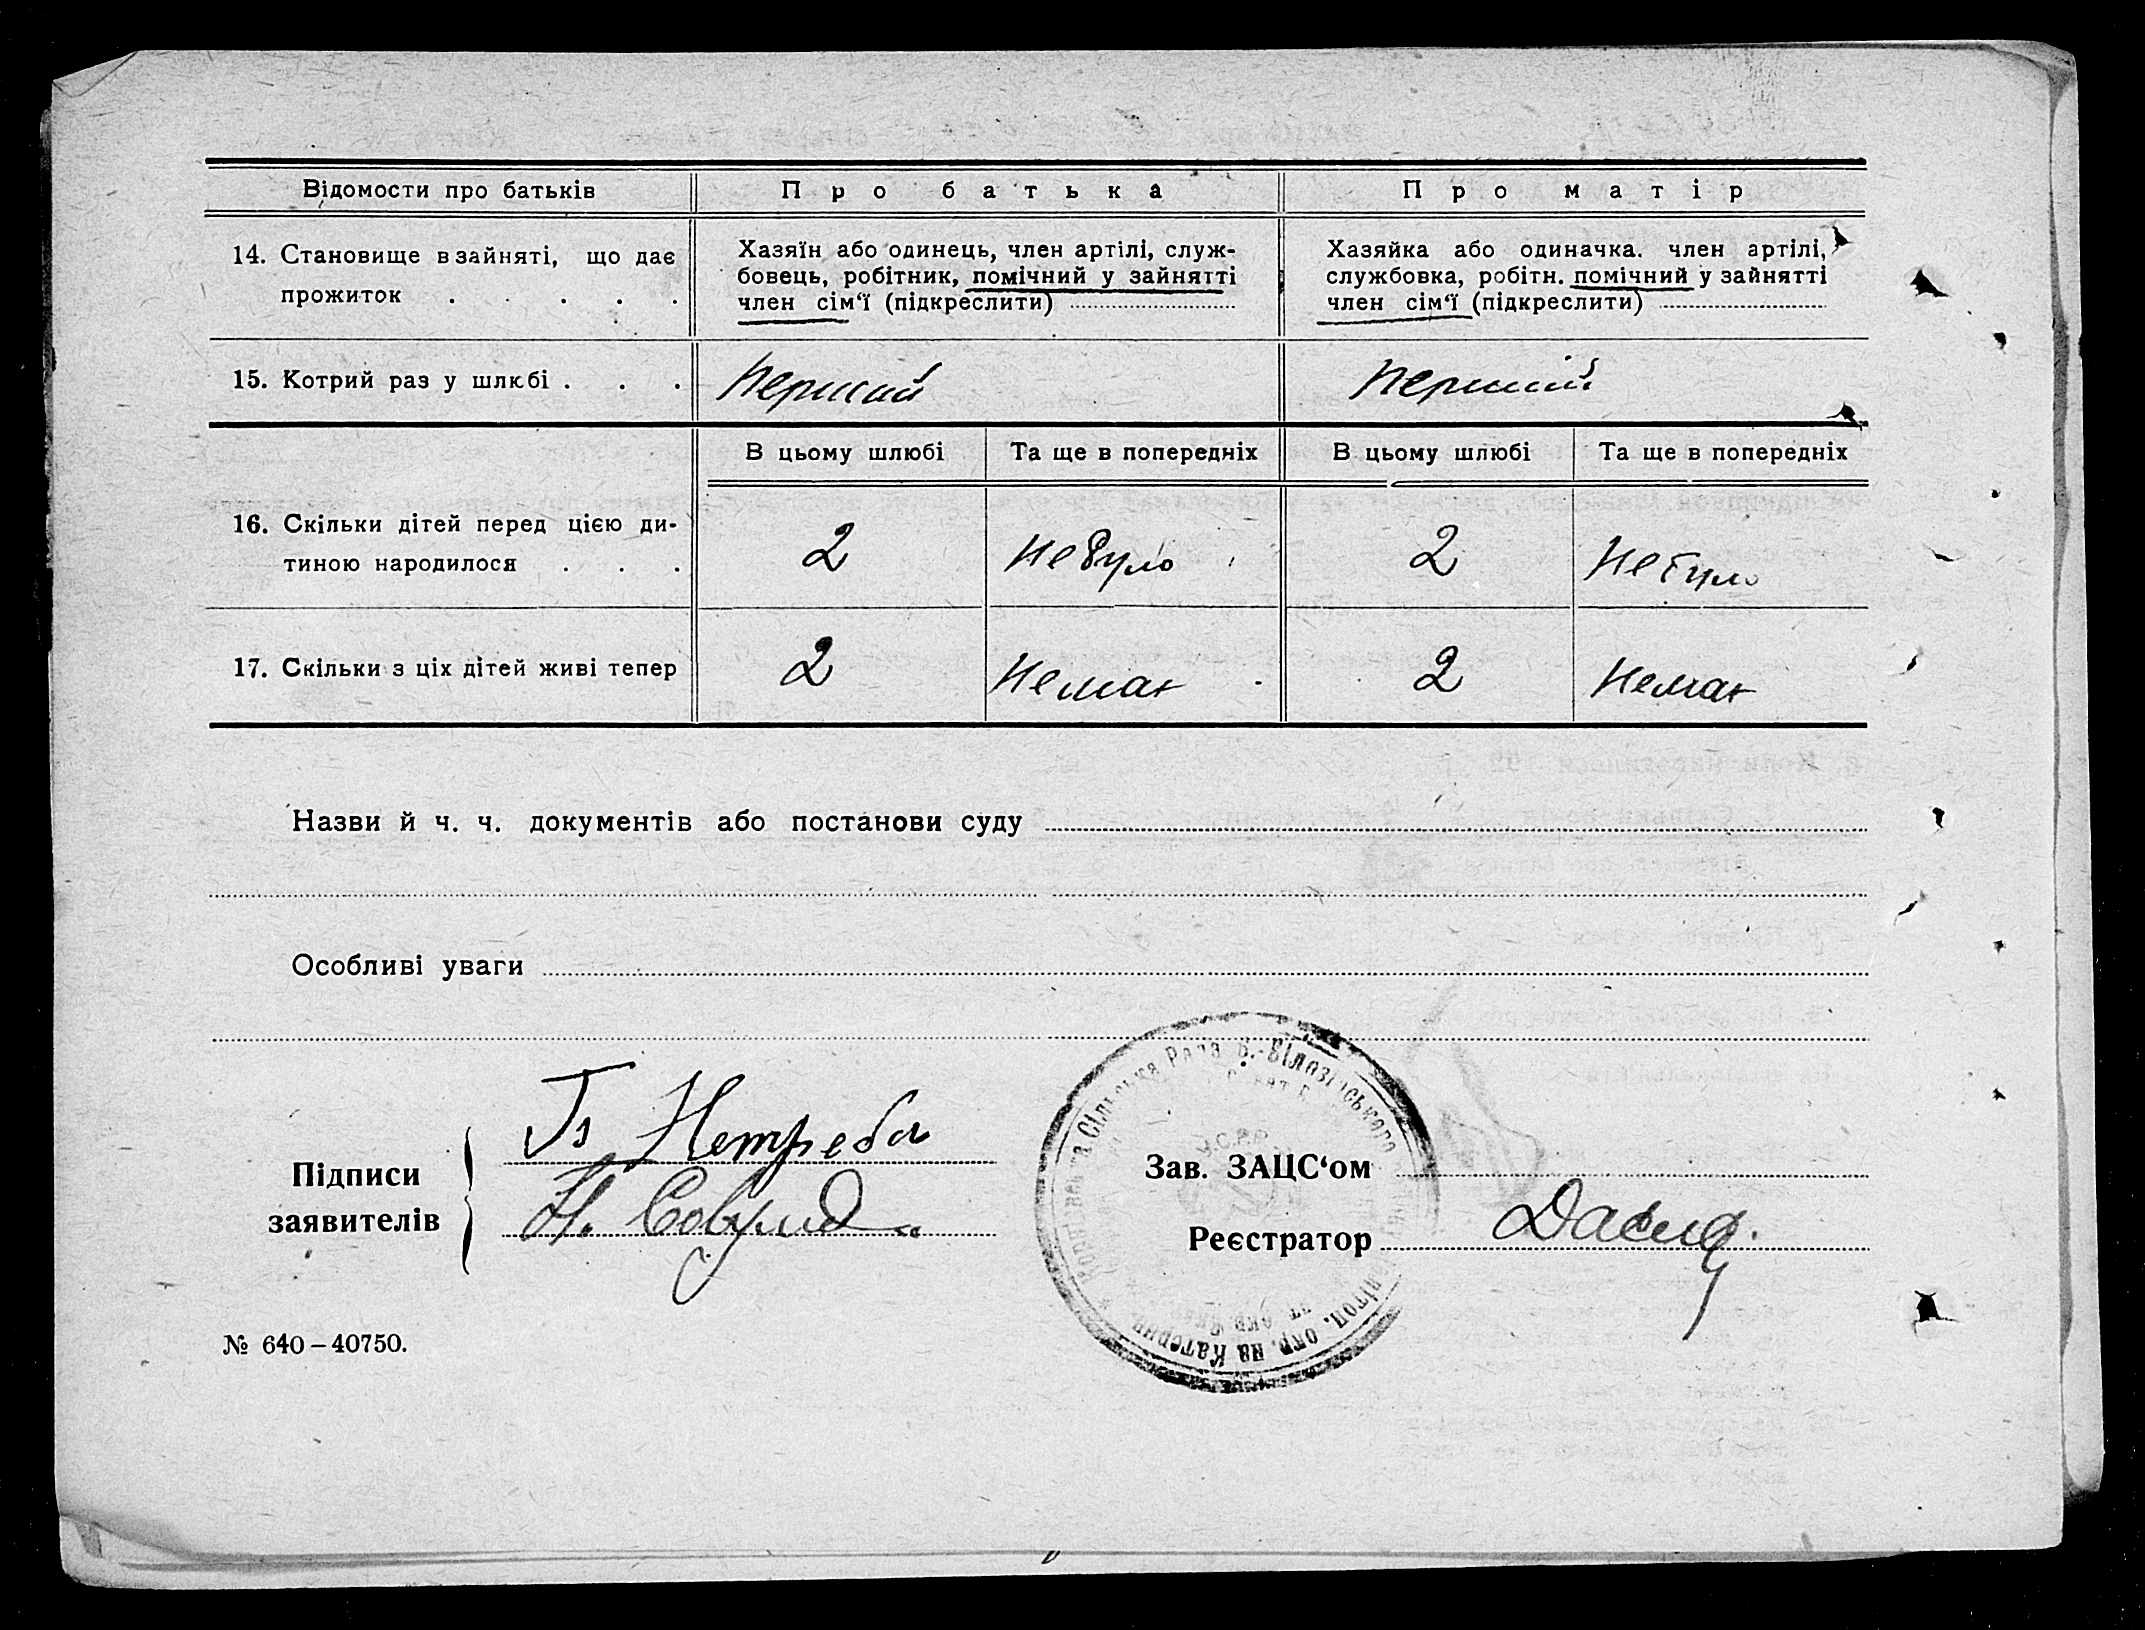 Відомости про батьків
Про батька
Про матір
14. Становище в зайняті, що дає
прожиток . . . . .
Хазяїн або одинець, член артілі, служ-
бовець, робітник, помічний у зайнятті
член сім'ї (підкреслити)
Хазяйка або одиначка. член артілі,
службовка, робітн. помічний у зайнятті
член сім'ї (підкреслити)
15. Котрий раз у шлюбі . . .
Перший
Перший
В цьому шлюбі
Та ще в попередніх
В цьому шлюбі
Та ще в попередніх
16. Скільки дітей перед цією ди-
тиною народилося . . .
2
Небуло
2
Небуло
17. Скільки з ціх дітей живі тепер
2
Немає
2
Немає
Назви й ч. ч. документів або постанови суду
Особливі уваги
Підписи
заявителів
Нетреба
Н.
Сільська Рада Білозірського
на Катерин
Зав. ЗАЦС'ом
Реєстратор
№ 640–40750.